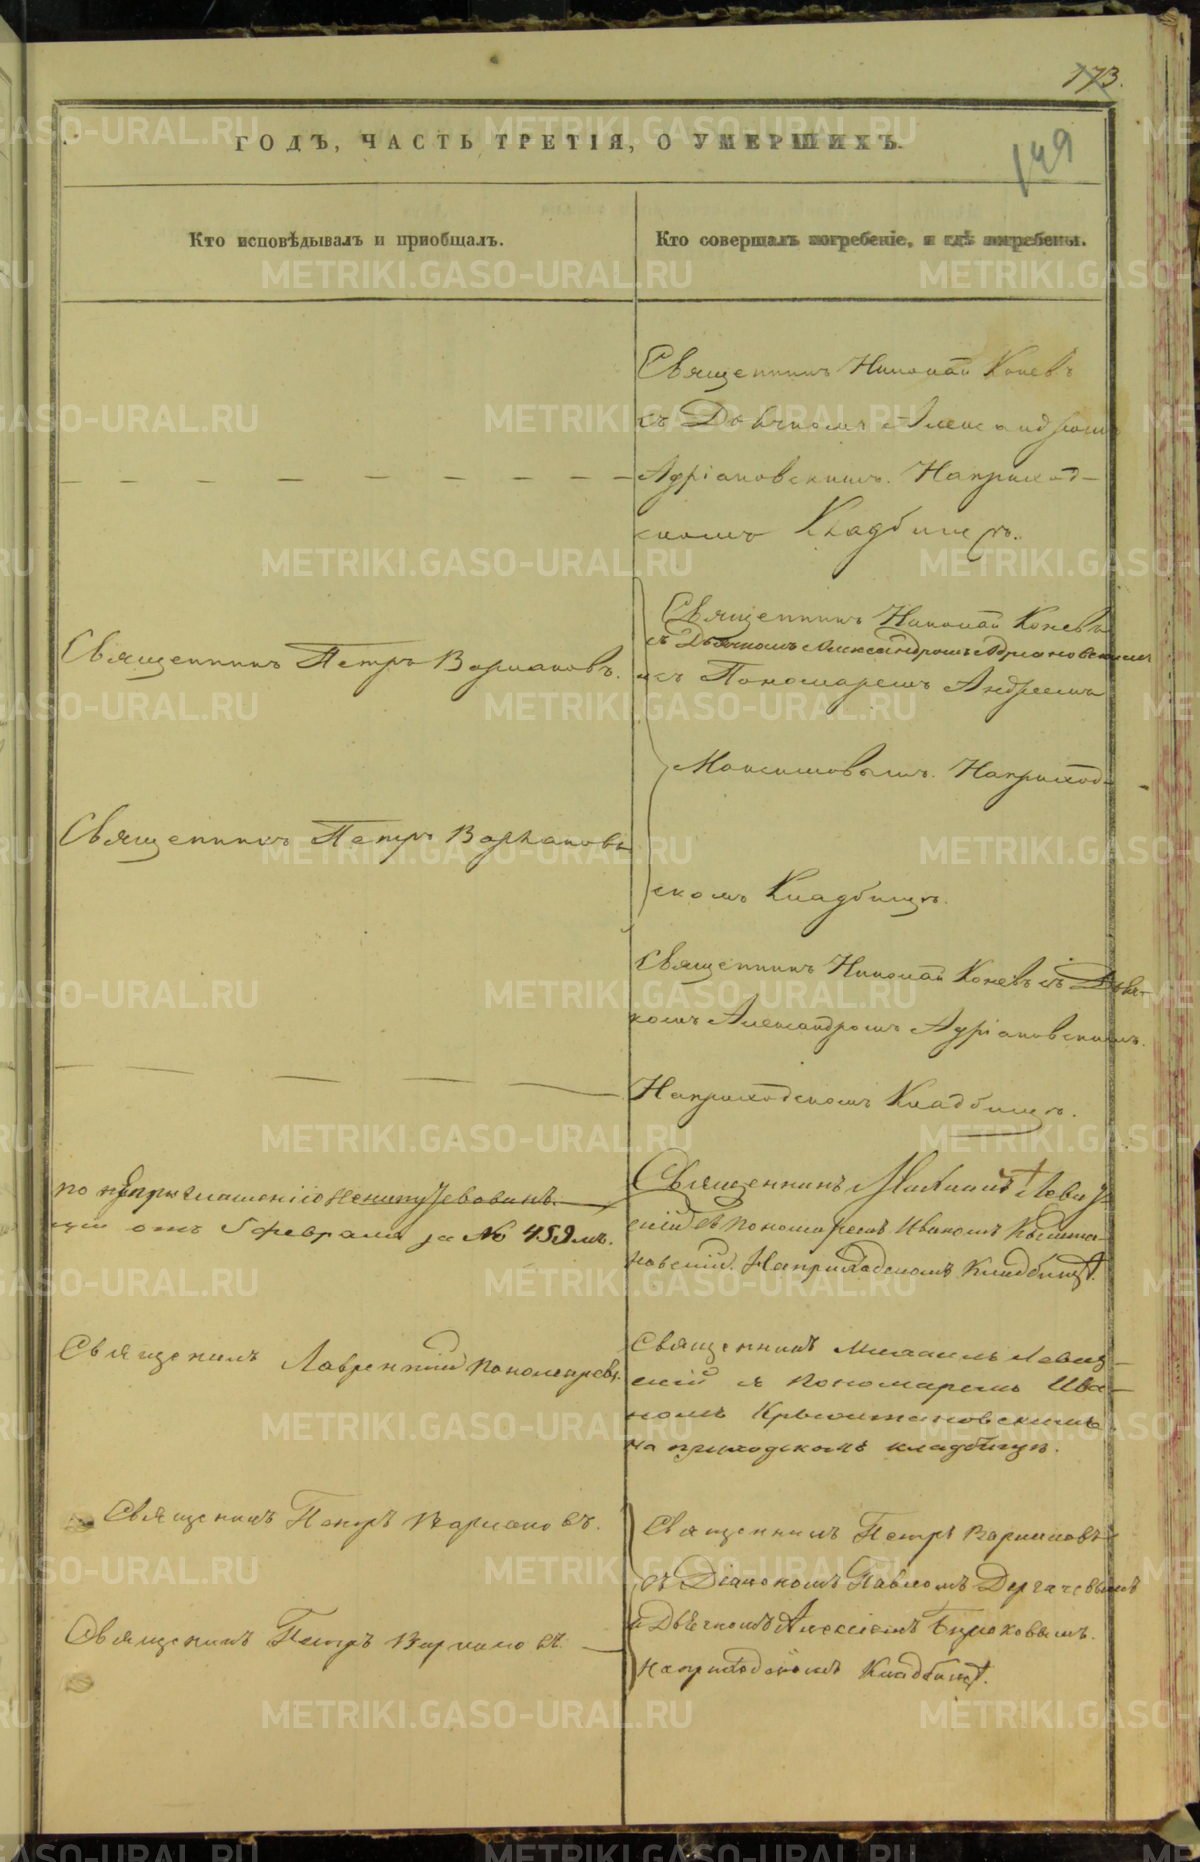 173.
149
ГОДЪ, ЧАСТЬ ТРЕТІЯ, О УМЕРШИХЪ.
Кто исповѣдывалъ и пріобщалъ.
Кто совершалъ погребеніе, и гдѣ погребены.
Священникъ Николай Коневъ
съ Дьячкомъ Александромъ
Адріановскимъ. Наприход-
скомъ Кладбищѣ.
Священникъ Петръ Вармаковъ.
Священникъ Петръ Вармаковъ
Священникъ Николай Коневъ
съ Дьячкомъ Александромъ Адриановскимъ
и съ Пономаремъ Андреемъ
Максимовымъ. Наприход-
скомъ Кладбищѣ.
Священникъ Николай Коневъ съ Дьяч-
комъ Александромъ Адріановскимъ.
Наприходскомъ Кладбищѣ.
по приглашенію
отъ 5 февраля за № 459мъ.
Священникъ Михаилъ Левиц-
скій съ пономаремъ Иваномъ
Наприходскомъ Кладбищѣ.
Священикъ Лаврентій Пономаревъ.
Священникъ Михаилъ Левиц-
скій и Пономаремъ Ива-
номъ
на приходскомъ кладбищѣ.
Священикъ Петръ Вармаковъ.
Священикъ Петръ Вармаковъ.
Священникъ Петръ Вармаковъ
съ Діакономъ Павломъ Дергачевымъ
и Дьячкомъ Алексіемъ Бирюковымъ.
Наприходскомъ Кладбищѣ.
METRIKI.GASO-URAL.RU